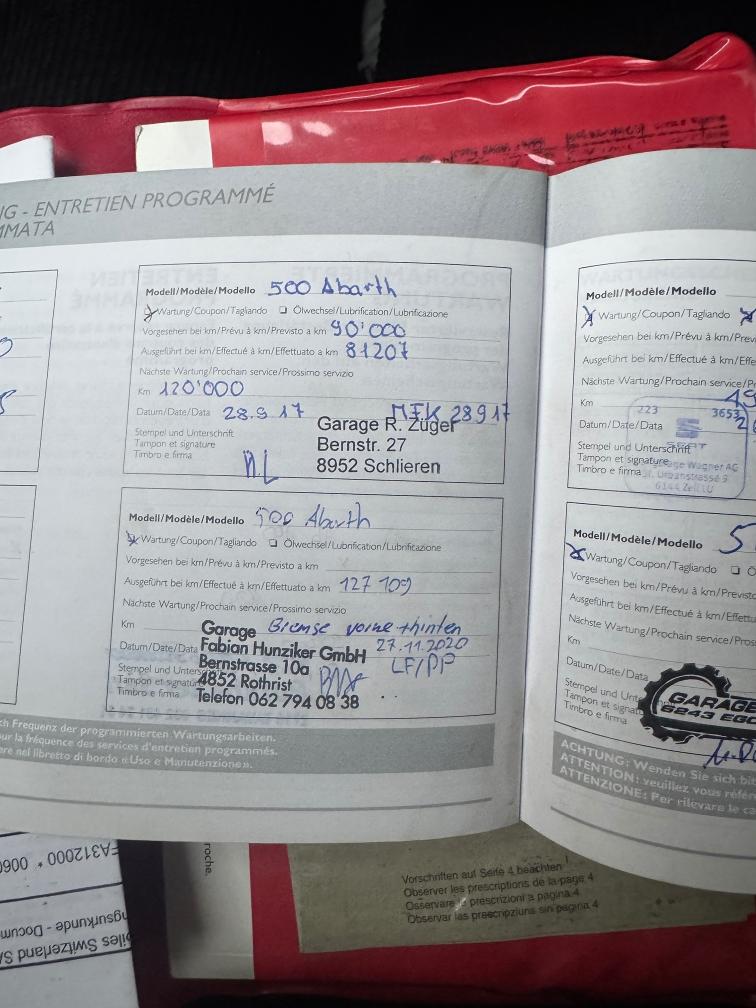 NG - ENTRETIEN PROGRAMMÉ
MMATA
Modell/Modèle/Modello 500 Abarth
Wartung/Coupon/Tagliando ❑ Ölwechsel/Lubrification/Lubrificazione
Vorgesehen bei km/Prévu à km/Previsto a km 90'000
Ausgeführt bei km/Effectué à km/Effettuato a km 81207
Nächste Wartung/Prochain service/Prossimo servizio
Km 120'000
Datum/Date/Data 28.9 17 MFK 28 9 17
Stempel und Unterschrift
Tampon et signature
Timbro e firma
Garage R. Züger
Bernstr. 27
8952 Schlieren
Modell/Modèle/Modello 500 Abarth
Wartung/Coupon/Tagliando ❑ Ölwechsel/Lubrification/Lubrificazione
Vorgesehen bei km/Prévu à km/Previsto a km
Ausgeführt bei km/Effectué à km/Effettuato a km 127 109
Nächste Wartung/Prochain service/Prossimo servizio
Km Bremse vorne + hinten
Datum/Date/Data 27.11.2020
Stempel und Unters
Tampon et signatu
Timbro e firma
LF/PP
Garage
Fabian Hunziker GmbH
Bernstrasse 10a
4852 Rothrist
Telefon 062 794 08 38
ch Frequenz der programmierten Wartungsarbeiten.
ur la fréquence des services d'entretien programmés.
ere nel libretto di bordo «Uso e Manutenzione».
Modell/Modèle/Modello
Wartung/Coupon/Tagliando
Vorgesehen bei km/Prévu à km/Previ
Ausgeführt bei km/Effectué à km/Effe
Nächste Wartung/Prochain service/P
Km
Datum/Date/Data
Stempel und Unterschrift
Tampon et signature
Timbro e firma
223
3653
SEAT
Wagner AG
6144 Zell LU
Modell/Modèle/Modello 5
Wartung/Coupon/Tagliando ❑ Ö
Vorgesehen bei km/Prévu à km/Previsto
Ausgeführt bei km/Effectué à km/Effettu
Nächste Wartung/Prochain service/Pros
Km
Datum/Date/Data
Stempel und Unte
Tampon et signat
Timbro e firma
GARAGE
6243 EG
ACHTUNG: Wenden Sie sich bit
ATTENTION: veuillez vous référ
ATTENZIONE: Per rilevare le ca
Vorschriften auf Seite 4 beachten
Observer les prescriptions de la page 4
Osservare le prescrizioni a pagina 4
Observar las prescripziuns sin pagina 4
roche.
FA312000 * 0060
ngsurkunde - Docum
biles Switzerland SA